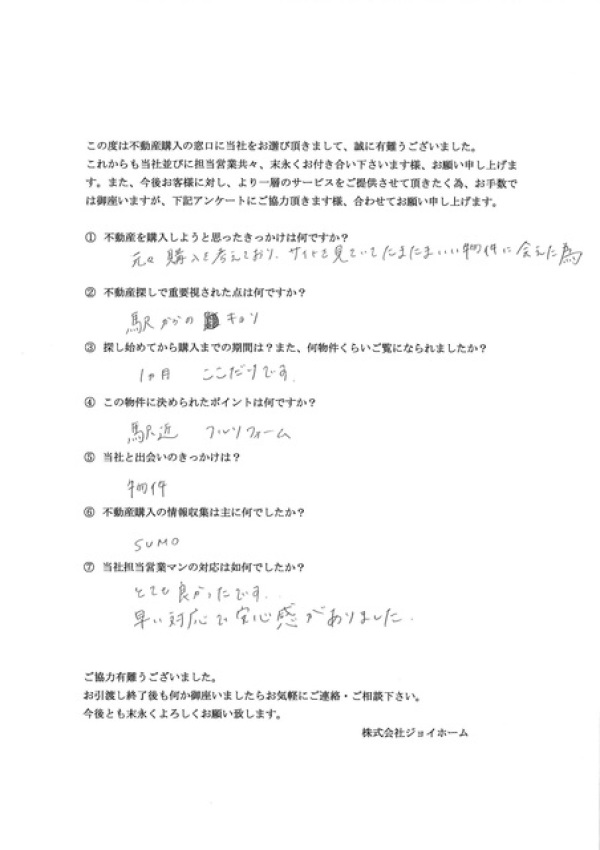 この度は不動産購入の窓口に当社をお選び頂きまして、誠に有難うございました。
これからも当社並びに担当営業共々、末永くお付き合い下さいます様、お願い申し上げま
す。また、今後お客様に対し、より一層のサービスをご提供させて頂きたく為、お手数で
は御座いますが、下記アンケートにご協力頂きます様、合わせてお願い申し上げます。
① 不動産を購入しようと思ったきっかけは何ですか？
元々購入を考えており、サイトを見ていてたまたまいい物件に会えた為
② 不動産探しで重要視された点は何ですか？
駅からの キョリ
③ 探し始めてから購入までの期間は？また、何物件くらいご覧になられましたか？
1ヵ月 ここだけです。
④ この物件に決められたポイントは何ですか？
駅近 フルリフォーム
⑤ 当社と出会いのきっかけは？
物件
⑥ 不動産購入の情報収集は主に何でしたか？
SUMO
⑦ 当社担当営業マンの対応は如何でしたか？
とても良かったです。
早い対応で安心感がありました。
ご協力有難うございました。
お引渡し終了後も何か御座いましたらお気軽にご連絡・ご相談下さい。
今後とも末永くよろしくお願い致します。
株式会社ジョイホーム